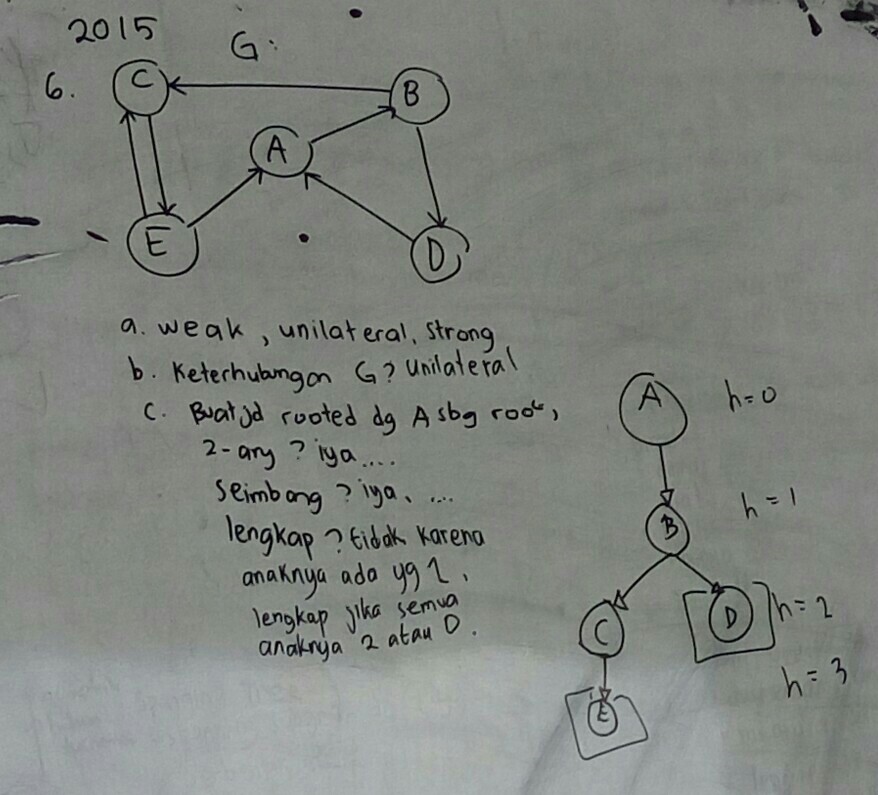 2015
G:
6.
C
B
A
E
D
a. weak, unilateral, strong
b. Keterhubungan G? Unilateral
c. Buat jd rooted dg A sbg root,
2-ary? iya....
Seimbang? iya, ....
lengkap? tidak karena
anaknya ada yg 1.
lengkap jika semua
anaknya 2 atau 0.
A h=0
B h=1
C D h=2
E h=3